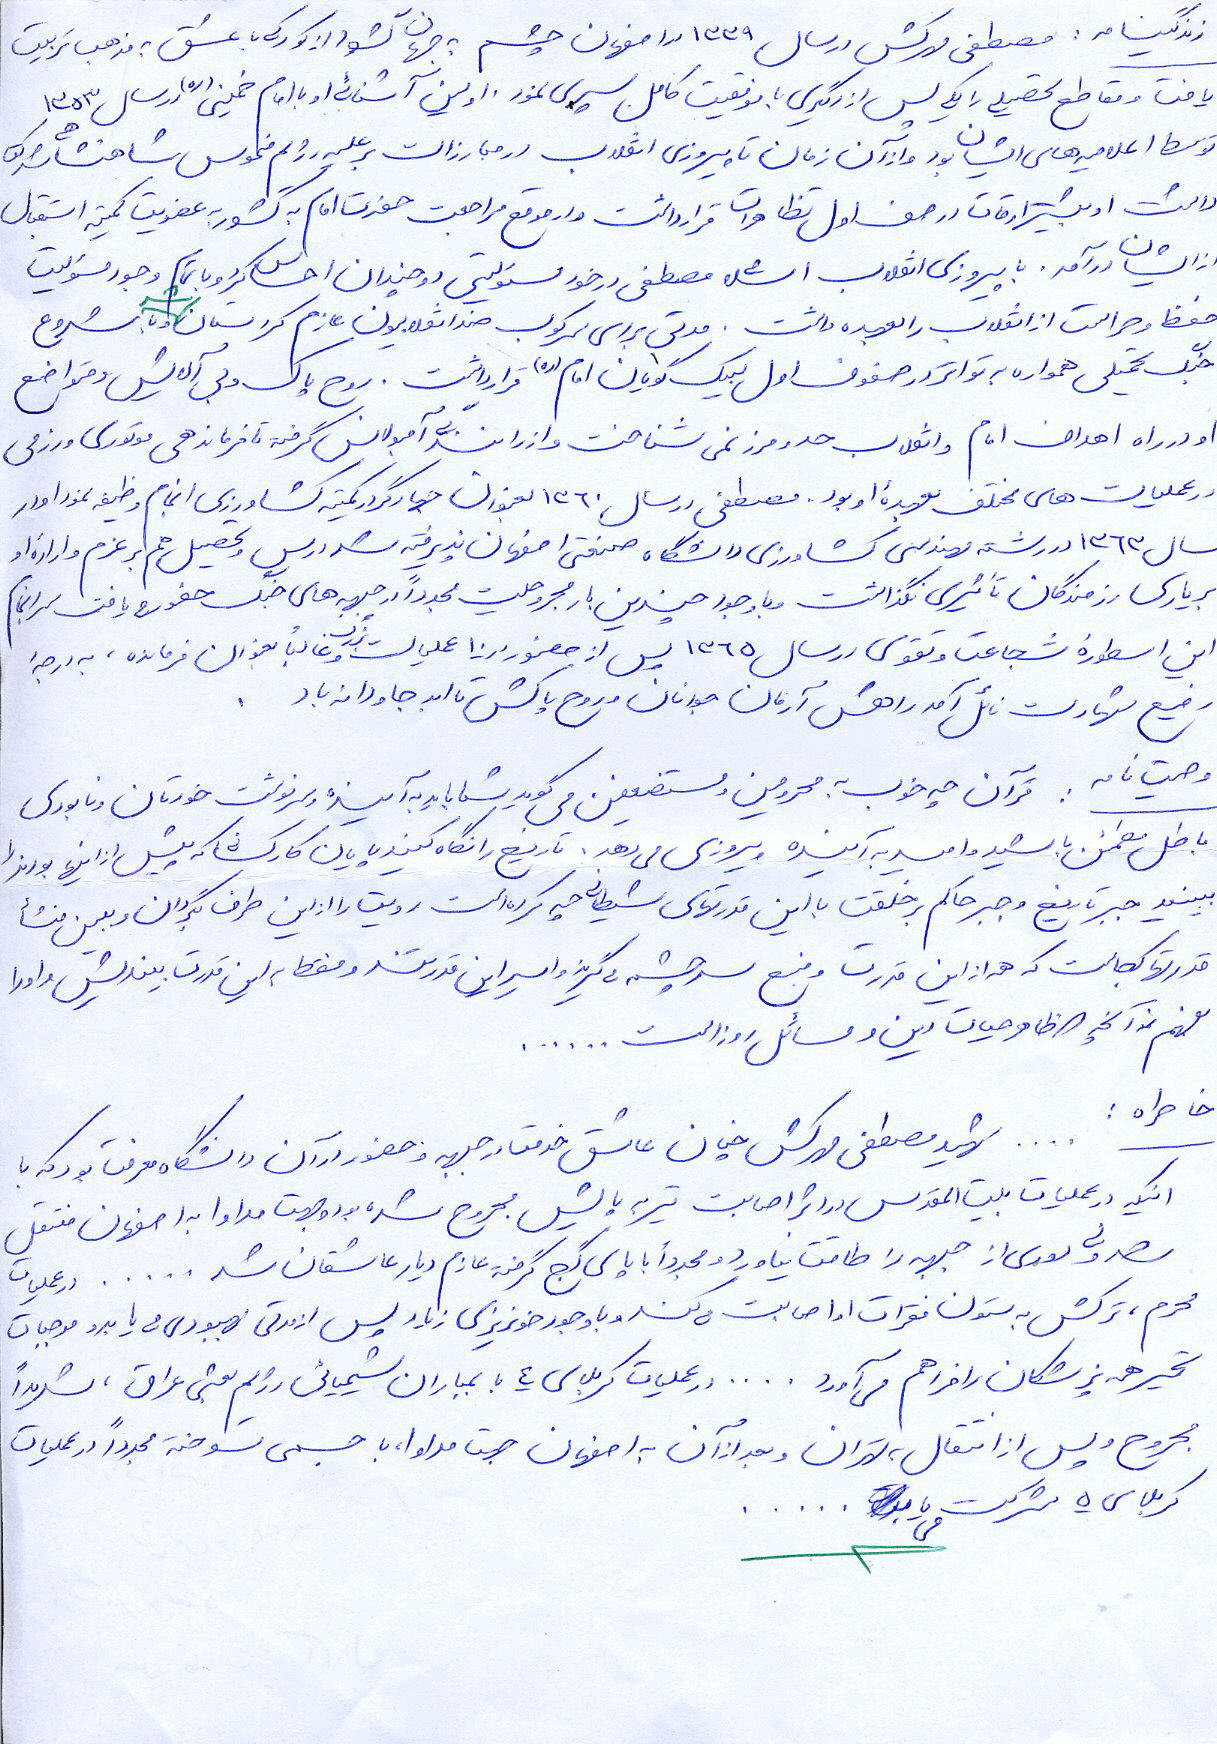 زندگینامه : مصطفی مهرکش در سال ۱۳۳۹ در اصفهان چشم به جهان گشود از کودکی با عشق به مذهب تربیت
یافت و مقاطع تحصیلی را یکی پس از دیگری با موفقیت کامل سپری نمود . اولین آشنائی او با امام خمینی (ره) در سال ۱۳۵۳
توسط اعلامیه‌های ایشان بود و از آن زمان تا پیروزی انقلاب در مبارزات بر علیه رژیم منحوس شاهنشاهی شرکت
داشت او بیشتر اوقات در صف اول تظاهرات قرار داشت و در موقع مراجعت حضرت امام به کشور به عضویت کمیته استقبال
از ایشان درآمد . با پیروزی انقلاب اسلامی مصطفی در خود مسئولیتی دوچندان احساس کرد و با تمام وجود مسئولیت
حفظ و حراست از انقلاب را بعهده داشت . مدتی برای سرکوب ضد انقلابیون عازم کردستان و با شروع
جنگ تحمیلی همواره به تواتر در صفوف اول لبیک گویان امام (ره) قرار داشت . روح پاک و بی آلایش و متواضع
او در راه اهداف امام و انقلاب حد و مرز نمی شناخت و از رانندگی آمبولانس گرفته تا فرماندهی موتوری رزمی
در عملیات های مختلف بعهدهٔ او بود . مصطفی در سال ۱۳۶۰ بعنوان جهادگر در کمیته کشاورزی انجام وظیفه نمود او در
سال ۱۳۶۳ در رشته مهندسی کشاورزی دانشگاه صنعتی اصفهان پذیرفته شد درس و تحصیل هم بر عزم و ارادهٔ او
بر یاری رزمندگان تأثیری نگذاشت و با وجود چندین بار مجروحیت مجدداً در جبهه های جنگ حضور می یافت سرانجام
این اسطورهٔ شجاعت و تقوی در سال ۱۳۶۵ پس از حضور در ۱۰ عملیات بزرگ و غالباً بعنوان فرمانده ، به درجهٔ
رفیع شهادت نائل آمد راهش آرمان جوانان و روح پاکش تا ابد جاودانه باد .
وصیت نامه : قرآن چه خوب به محرومین و مستضعفین می گوید شما باید به آینده و سرنوشت خودتان و نابودی
باطل مطمئن باشید و امید به آینده و پیروزی می دهد . تاریخ را نگاه کنید پایان کار کسانی که پیش از اینها بودند را
ببینید جبر تاریخ و جبر حاکم بر خلقت با این قدرتهای شیطانی چه کرده است رویت را از این طرف بگردان و ببین منشأ
قدرتها کجاست که همه از این قدرت و منبع سرچشمه می گیرند و اسیر این قدرتند و فقط به این قدرت بیندیش و او را
بفهم نه آنچه ظاهر حیات دین و مسائل روز است ......
خاطراه :
.... شهید مصطفی مهرکش چنان عاشق خدمت در جبهه و حضور در آن دانشگاه معرفت بود که با
اینکه در عملیات بیت المقدس در اثر اصابت تیر به پایش مجروح شده بود و جهت مداوا به اصفهان منتقل
شد ولی دوری از جبهه را طاقت نیاورد و مجدداً با پای گچ گرفته عازم دیار عاشقان شد ..... در عملیات
محرم ، ترکش به ستون فقرات او اصابت می کند و با وجود خونریزی زیاد پس از مدتی بهبودی می یابد و موجبات
تحیر همه پزشکان را فراهم می آورد .... در عملیات کربلای ٤ با بمباران شیمیائی رژیم بعثی عراق ، شدیداً
مجروح و پس از انتقال به تهران و بعد از آن به اصفهان جهت مداوا ، با جسمی سوخته مجدداً در عملیات
کربلای ۵ شرکت می یابد .....